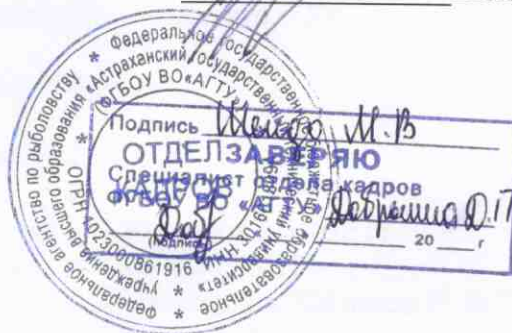 Федеральное агентство по рыболовству * Федеральное государственное образовательное
учреждение высшего образования «Астраханский государственный университет»
* ОГРН 1023000861916 * ИНН
(ФГБОУ ВО «АГТУ»
ОТДЕЛ
КАДРОВ
Подпись М.В
ЗАВЕРЯЮ
Специалист отдела кадров
ФГБОУ ВО "АГТУ"
(подпись)
20 г